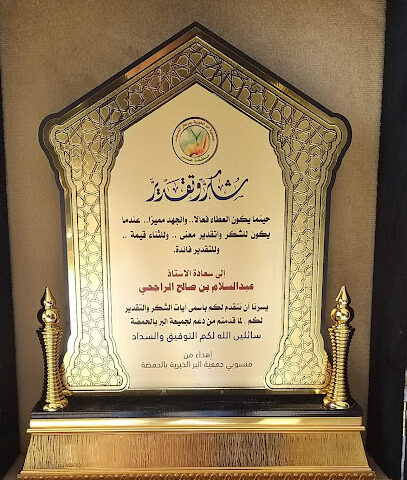 شكر وتقدير
حينما يكون العطاء فعالا.. والجهد مميزا.. عندما
يكون للشكر واتقدير معنى .. وللثناء قيمة ..
وللتقدير فائدة.
إلى سعادة الاستاذ
عبدالسلام بن صالح الراجحي
يسرنا أن نتقدم لكم باسمى آيات الشكر والتقدير
لكم .. لما قدمتم من دعم لجميعة البر بالحمضة
سائلين الله لكم التوفيق والسداد
إهداء من
منسوبي جمعية البر الخيرية بالحمضة